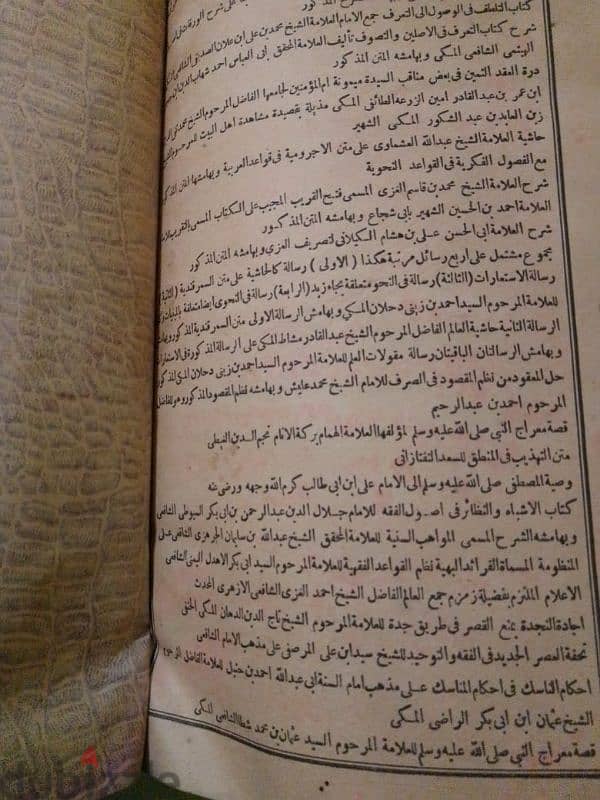 كتاب التلطف في الوصول الى التعرف جمع الامام العلامة الشيخ محمد بن علي ابن علان الصديقي الشافعي
شرح كتاب التعرف في الاصلين والتصوف تأليف العلامة المحقق أبي العباس احمد شهاب الدين
الهيتمي الشافعي المكي وبهامشه المتن المذكور
درة العقد الثمين في بعض مناقب السيدة ميمونة ام المؤمنين لجامعها الفاضل المرحوم الشيخ محمد
ابن عمر بن عبد القادر امين الطائفي المكي مذيلة بقصيدة مشاهدة اهل البيت للمرحوم
زين العابدين عبد الشكور المكي الشهير
حاشية العلامة الشيخ عبد الله العشماوي على متن الاجرومية في قواعد العربية وبهامشها المتن المذكور
مع الفصول الفكرية في القواعد النحوية
شرح العلامة الشيخ محمد بن قاسم الغزي المسمى فتح القريب المجيب على الكتاب المسمى بالتقريب للامام
العلامة احمد بن الحسين الشهير بابي شجاع وبهامشه المتن المذكور
شرح العلامة ابي الحسن علي بن هشام الكيلاني لتصريف العزي وبهامشه المتن المذكور
مجموع مشتمل على اربع رسائل مرتبة هكذا (الاولى) رسالة كالحاشية على متن السمرقندية (الثانية)
رسالة الاستعارات (الثالثة) رسالة في النحو متعلقة بجاء زيد (الرابعة) رسالة في النحو ايضا متعلقة
للعلامة المرحوم السيد احمد بن زيني دحلان المكي وبهامش الرسالة الاولى متن السمرقندية المذكور وبهامش
الرسالة الثانية حاشية العالم الفاضل المرحوم الشيخ عبد القادر مشاط المكي على الرسالة المذكورة في الاستعارات
وبهامش الرسالتان الباقيتان رسالة مقولات العلم للعلامة المرحوم السيد احمد بن زيني دحلان المكي المذكور
حل المعقود من نظم المقصود في الصرف للامام الشيخ محمد عليش وبهامشه نظم المقصود المذكور وهو للفاضل
المرحوم احمد بن عبد الرحيم
قصة معراج النبي صلى الله عليه وسلم لمؤلفها العلامة الهمام بركة الانام نجم الدين الغيطي
متن التهذيب في المنطق للسعد التفتازاني
وصية المصطفى صلى الله عليه وسلم الى الامام على ابن ابي طالب كرم الله وجهه ورضي عنه
كتاب الاشباه والنظائر في اصول الفقه للامام جلال الدين عبد الرحمن بن ابي بكر السيوطي الشافعي
وبهامشه الشرح المسمى المواهب السنية للعلامة المحقق الشيخ عبد الله بن سليمان الجرهزي الشافعي على
المنظومة المسماة الفرائد البهية نظم القواعد الفقهية للعلامة المرحوم السيد ابي بكر الاهدل اليمني الشافعي
الاعلام الملتزم بفضيلة زمزم جمع العالم الفاضل الشيخ احمد الغزي الشافعي الازهري المحدث
اجادة النجدة بمنع القصر في طريق جدة للعلامة المرحوم الشيخ تاج الدين الدهان المكي الحنفي
تحفة العصر الجديد في الفقه والتوحيد للشيخ سيد ابن علي المرصفي على مذهب الامام الشافعي
احكام الناسك في احكام المناسك على مذهب امام السنة ابي عبد الله احمد بن حنبل للعلامة الفاضل المرحوم
الشيخ عثمان ابن ابي بكر الراضي المكي
قصة معراج النبي صلى الله عليه وسلم للعلامة المرحوم السيد عثمان بن محمد شطا الشافعي المكي
dubizzle